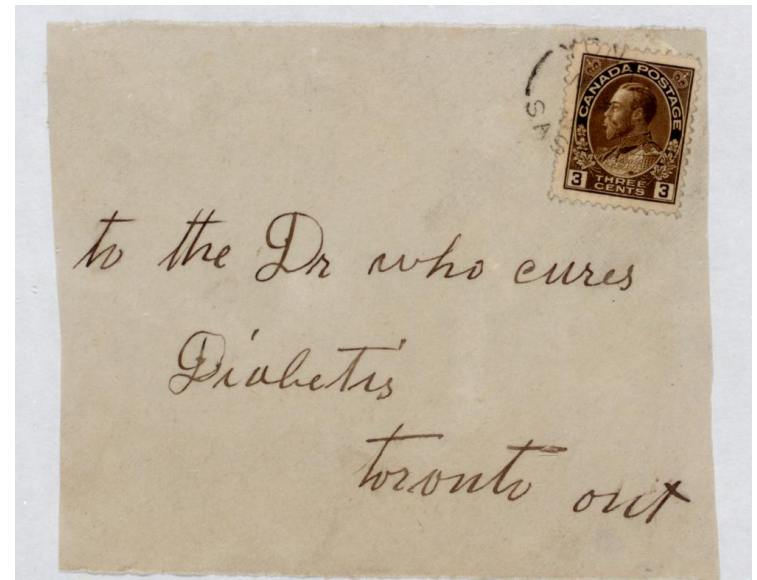 CANADA POSTAGE
3 THREE CENTS 3
to the Dr who cures
Diabetis
toronto ont